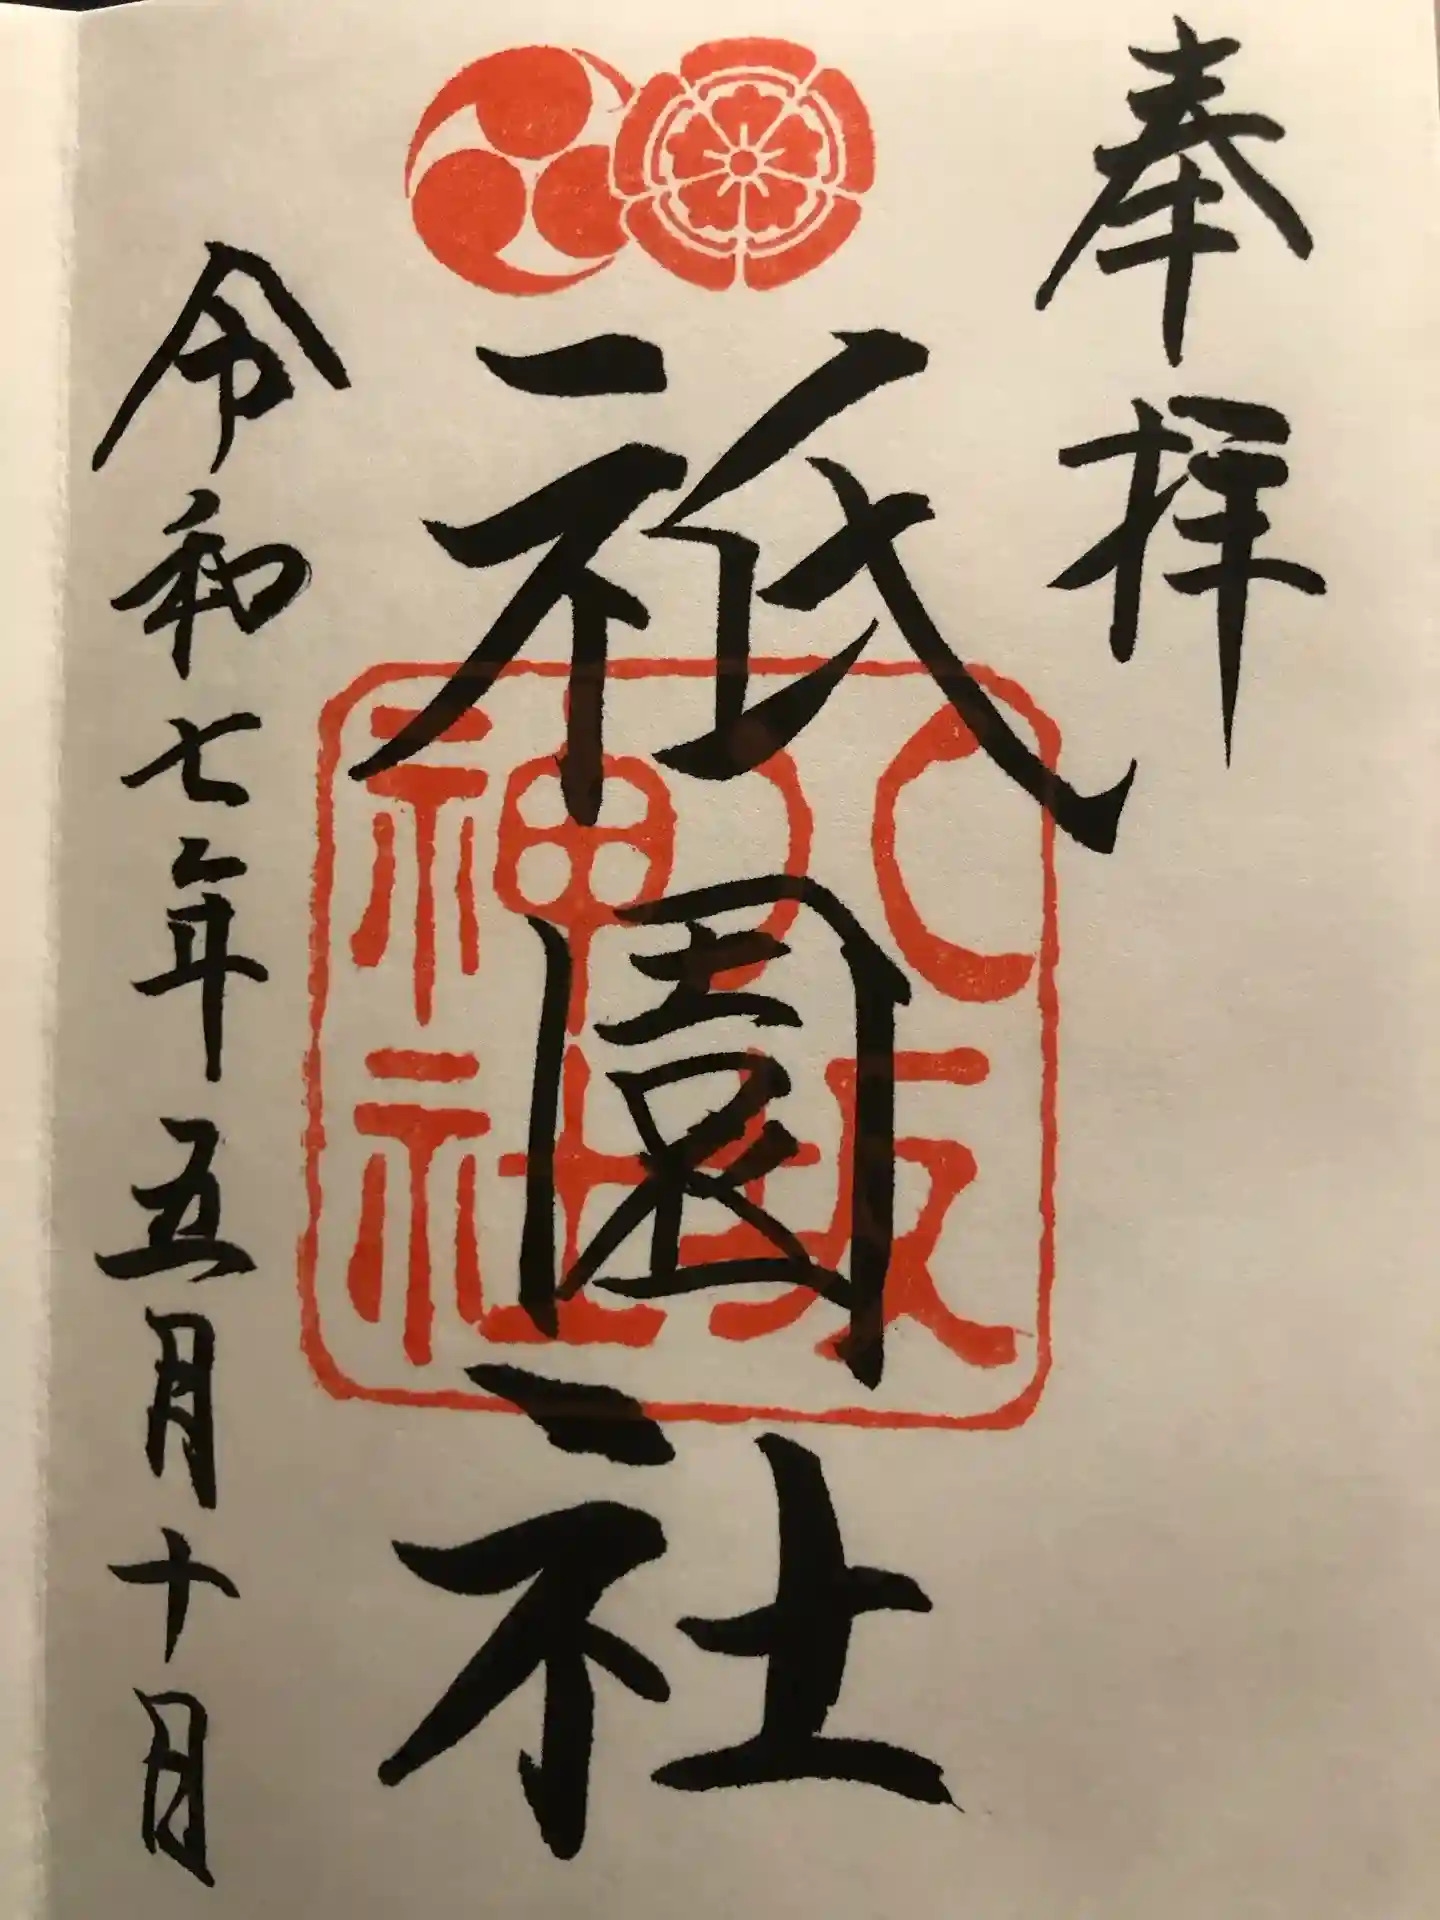 奉拝
祇園社
八坂
神社
令和七年五月十日